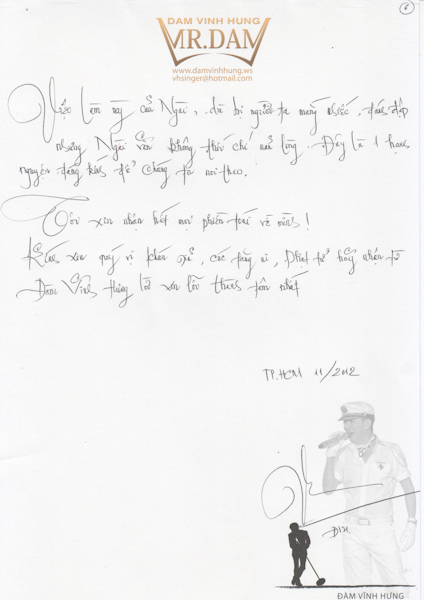 6
DAM VINH HUNG
MR.DAM
www.damvinhhung.ws
vhsinger@hotmail.com
Việc làm này của Ngài, dù bị người ta mắng nhiếc, đánh đập
nhưng Ngài vẫn không thối chí nản lòng. Đây là 1 hạnh
nguyện đáng kính để chúng ta noi theo.
Tôi xin nhận hết mọi phiền toái về mình!
Kính xin quý vị khán giả, các tăng ni, Phật tử hãy nhận từ
Đàm Vĩnh Hưng lời xin lỗi thành tâm nhất
TP.HCM 11/2012
ĐVH
ĐÀM VĨNH HƯNG